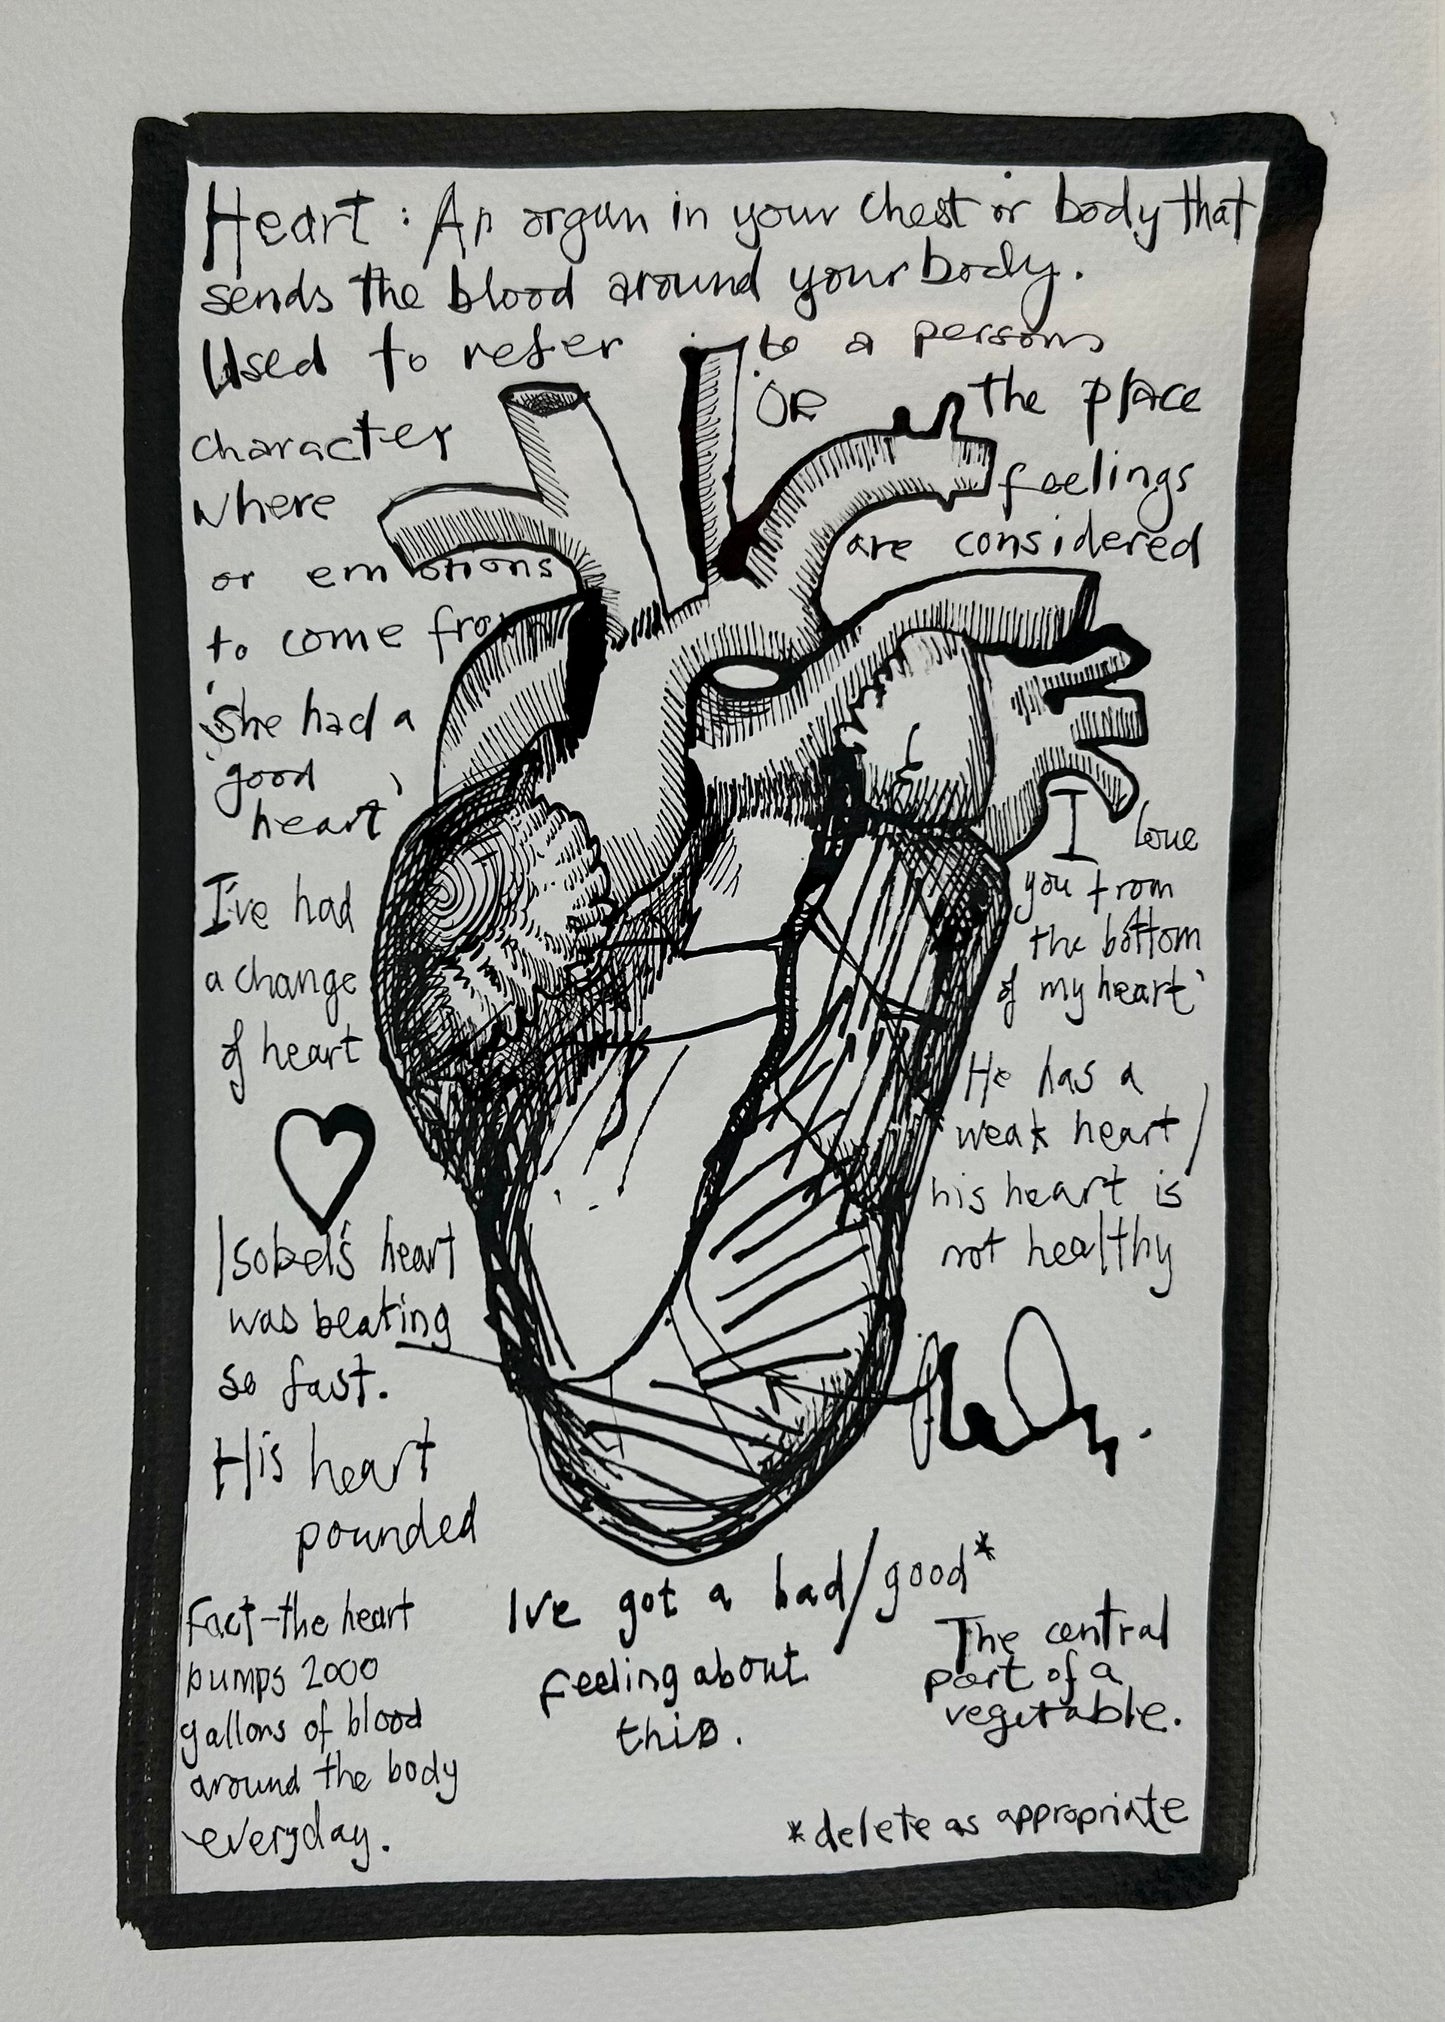 Heart : An organ in your chest or body that
sends the blood around your body.
Used to refer to a persons
character OR the place
where feelings
or emotions are considered
to come from
'She had a
'good
heart'
I've had
a change
of heart
I love
you from
the bottom
of my heart'
He has a
weak heart /
his heart is
not healthy
Isobel's heart
was beating
so fast.
His heart
pounded
Fact - the heart
pumps 2000
gallons of blood
around the body
everyday.
I've got a bad/good*
feeling about
this.
The central
part of a
vegetable.
*delete as appropriate